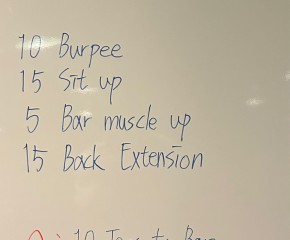 10 Burpee
15 Sit up
5 Bar muscle up
15 Back Extension
10